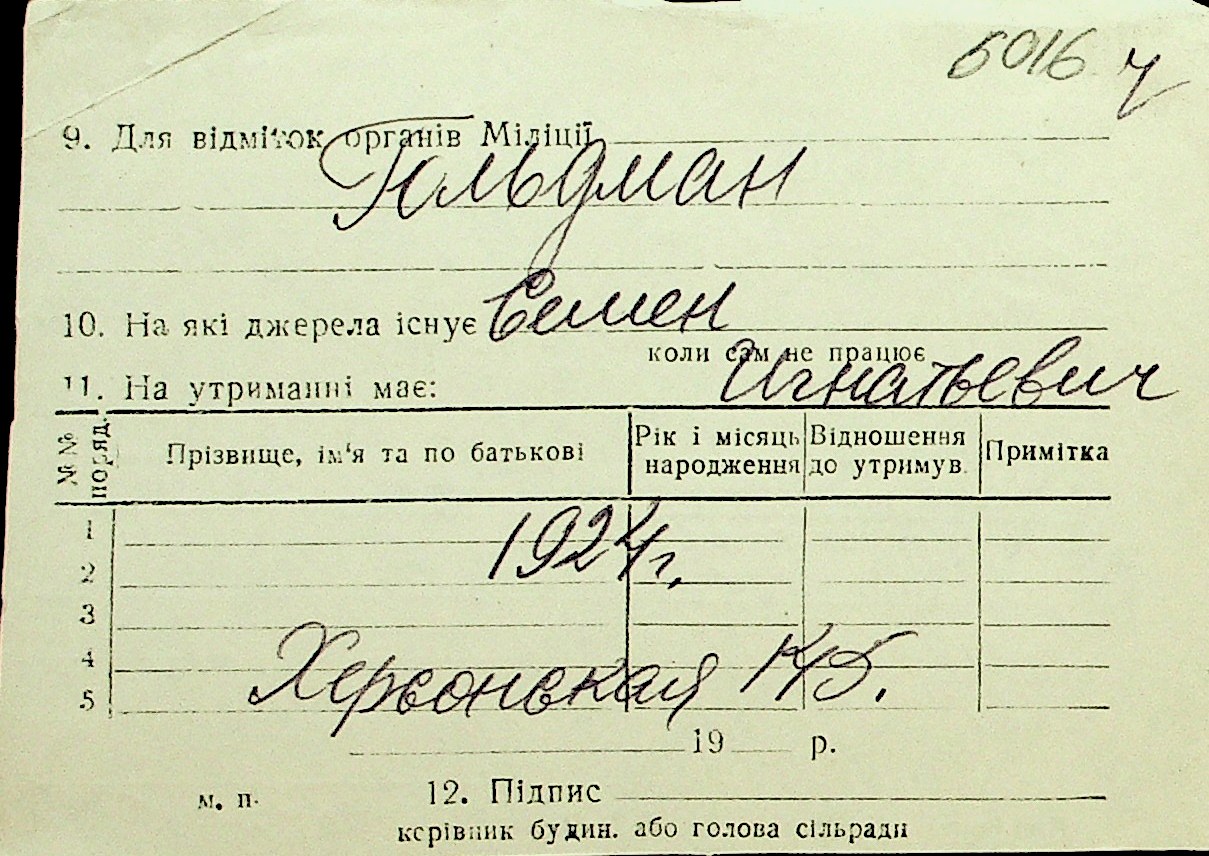 5016 ч
9. Для відміток органів Міліції
Гольдман
10. На які джерела існує Семен
коли сам не працює
Игнатьевич
11. На утриманні має:
№№ поряд. Прізвище, ім'я та по батькові Рік і місяць народження Відношення до утримув. Примітка
1
1924г.
2
3
4
Херсонская
5
19 р.
м. п. 12. Підпис
керівник будин. або голова сільради